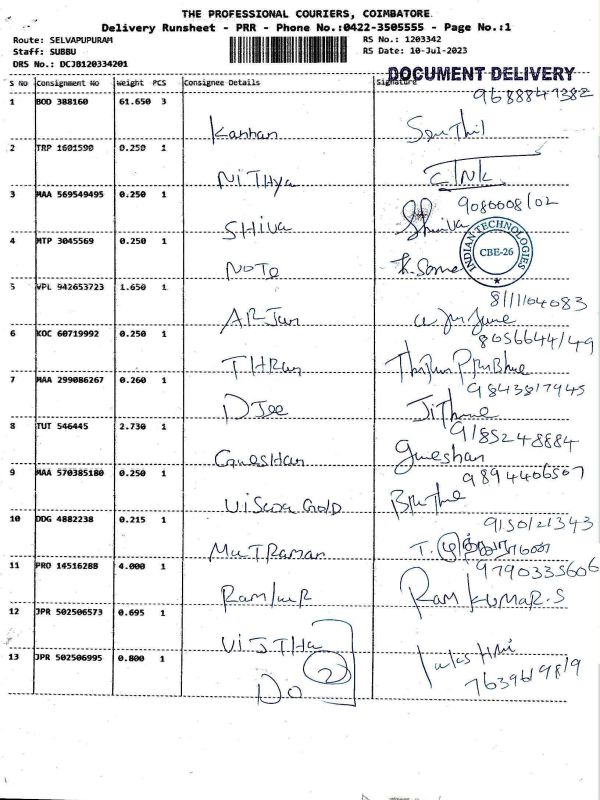 THE PROFESSIONAL COURIERS, COIMBATORE.
Delivery Runsheet - PRR - Phone No.:0422-3505555 - Page No.:1
Route: SELVAPUPURAM
RS No.: 1203342
Staff: SUBBU
RS Date: 10-Jul-2023
DRS No.: DCJB120334201
DOCUMENT DELIVERY
S No Consignment No Weight PCS Consignee Details Signature
9688841382
1 BOD 388160 61.650 3
Kannan Senthil
2 TRP 1601590 0.250 1
NiTHya
3 MAA 569549495 0.250 1
9080008102
SHIVA Shiva
4 MTP 3045569 0.250 1
INDIAN TECHNOLOGIES
CBE-26
NOTO
5 VPL 942653723 1.650 1
8111104083
ARJun
6 KOC 60719992 0.250 1
8056644149
7 MAA 299086267 0.260 1
9843817945
DJee
8 TUT 546445 2.730 1
9185248884
GneSHan gneshan
9 MAA 570385180 0.250 1
9894406507
10 DDG 4882238 0.215 1
9150121343
MuTRaman
11 PRO 14516288 4.000 1
9790335606
RAM KUMAR.S
12 JPR 502506573 0.695 1
13 JPR 502506995 0.800 1
2
Do
7639619819